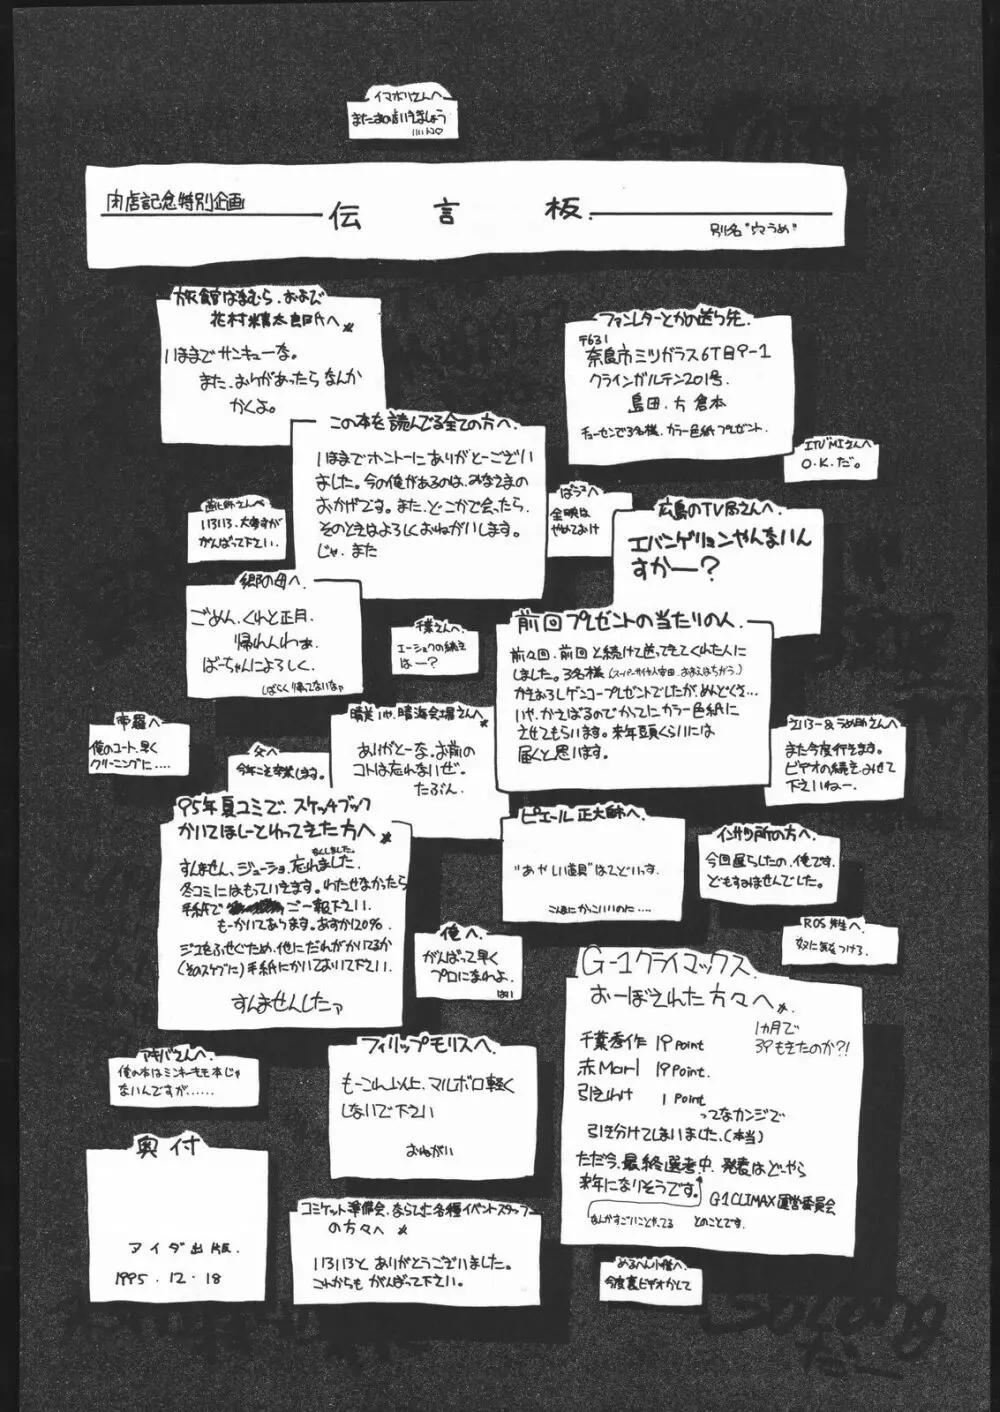 イマホリさんへ
またあの店いきましょう
肉店記念特別企画
伝言板
別名"穴うめ"
旅館はまむら、および
花村精太郎氏へ
いままでサンキューな。
また、おりがあったらなんか
かくよ。
ファンレターとかの送り先
〒631
奈良市ミツガラス6丁目9-1
クラインガルテン201号
島田.方 倉本
チューセンで3名様、カラー色紙プレゼント.
この本を読んでる全ての方へ.
いままでホントーにありがとーござい
ました。今の俺があるのは、みなさまの
おかげです。また、どこかで会ったら、
そのときはよろしくおねがいします。
じゃ、また
ITVMIさんへ
O.K.だ。
いろいろ、大変すが
がんばって下さい.
ばらスへ
金映は
やめておけ
広島のTV局さんへ.
エバンゲリョンやんないん
すかー?
郷の母へ.
ごめん、くれと正月、
帰れんわぁ.
ばーちゃんによろしく.
しばらく帰ってないなァ
千葉さんへ.
エーショクの続き
は-?
前回プレゼントの当たりの人.
前々回、前回と続けて送ってきてくれた人に
しました。3名様(スーパーサイヤ人吉田、おまえはちがう.)
かきおろしゲンコープレゼントでしたが、めんどくさ...
いや、かさばるのでかってにカラー色紙に
させてもらいます。来年頭くらいには
届くと思います。
帝羅へ
俺のコート、早く
クリーニングに....
父へ
今年こそ卒業します。
晴美いや、晴海会場さんへ
ありがとーな、お前の
コトは忘れないぜ.
たぶん.
また今度行きます。
ビデオの続き、みせて
下さいねー.
95年夏コミで、スケッチブック
かいてほしーとわってきた方へ
すんません、ジューショ、忘れました.
なくしました。
冬コミにはもっていきます。わたせなかったら
手紙で ご一報下さい.
もーかいてあります。あすか120%
ジコをふせぐため、他にだれがかいてるか
(そのスケブに)手紙にかいておいて下さい.
すんませんしたァ
ピエール正大師へ.
"あやしい道具"はてどいっす.
こんなにかっこいいのに....
インサツ所の方へ.
今回遅らしたの、俺です.
どもすみませんでした。
ROS先生へ.
奴に気をつけろ.
俺へ.
がんばって早く
プロになれよ.
はい
G-1クライマックス
おーぼされた方々へ
千葉秀作 19 Point
赤Marl 19 Point.
引きわけ 1 Point
1カ月で
39もきたのか?!
ってなカンジで
引き分けてしまいました.(本当)
ただ今、最終選考中、発表はどーやら
来年になりそうです。
G-1 CLIMAX運営委員会
なんかすごいことやってる とのことです.
アキバさんへ.
俺の本はミンキーモモ本じゃ
ないんですが......
フィリップモリスへ.
もーこれ以上、マルボロ軽く
しないで下さい
おねがい
奥付
アイダ出版.
1995.12.18
コミケット準備会、ならびに各種イベントスタッフ
の方々へ
いろいろと、ありがとうございました。
これからも がんばって下さい。
めるへん小僧へ.
今度裏ビデオかして
So Long
だー